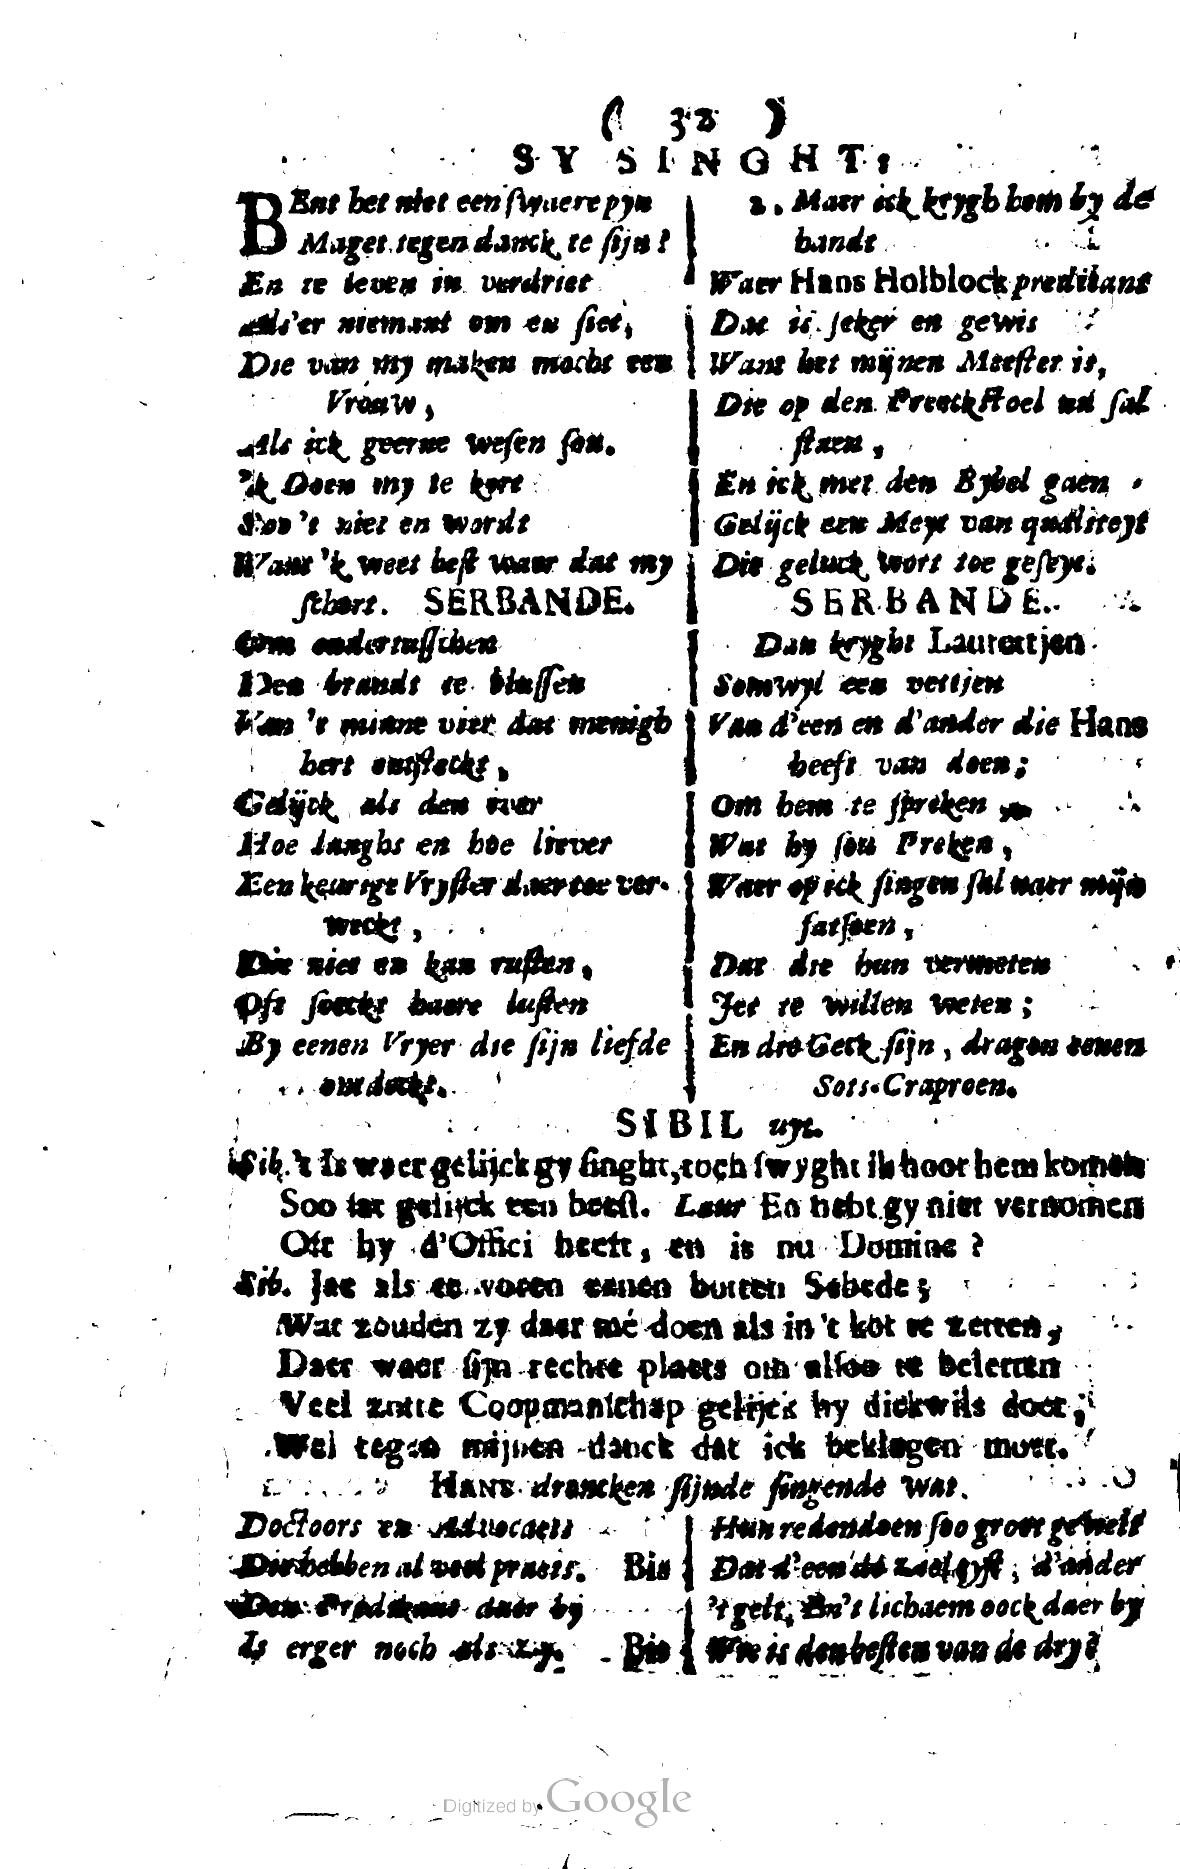 ( 38 )
SY SINGHT:
BEnt het niet een ſwaere pyn
Maget tegen danck te ſijn?
En te leven in verdriet
Als'er niemant om en ſiet,
Die van my maken mocht een
Vrouw,
Als ick geerne weſen ſou.
'k Doen my te kort
Soo 't niet en wordt
Want 'k weet beſt waer dat my
ſchort. SERBANDE.
Om ondertuſſchen
Den brandt te bluſſen
Van 't minne vier dat menigh
hert ontſteckt,
Gelijck als den iver
Hoe langhs en hoe liever
Een keurige Vryſter daer toe ver-
weckt,
Die niet en kan ruſten,
Oft ſoeckt haere luſten
By eenen Vryer die ſijn liefde
ontdeckt.
2. Maer ick krygh hem by de
handt
Waer Hans Holblock predikant
Dat is ſeker en gewis
Want het mijnen Meeſter is,
Die op den Preeckſtoel nu ſal
ſtaen,
En ick met den Bybel gaen
Gelijck een Meyt van qualiteyt
Die geluck wort toe geſeyt.
SERBANDE.
Dan kryght Laurettjen
Somwyl een vettjen
Van d'een en d'ander die Hans
heeft van doen;
Om hem te ſpreken
Wat hy ſou Preken,
Waer op ick ſingen ſal naer mijn
fatſoen,
Dat die hun vermeten
Jet te willen weten;
En die Geck ſijn, dragen eenen
Sots-Craproen.
SIBIL uyt.
Sib. 't Is waer gelijck gy ſinght, toch ſwyght ik hoor hem komen
Soo zat gelijck een beeſt. Laur En hebt gy niet vernomen
Oft hy d'Offici heeft, en is nu Domine?
Sib. Jae als te voren eenen botten Sebede;
Wat zouden zy daer mé doen als in 't kot te zetten,
Daer waer ſijn rechte plaets om alſoo te beletten
Veel zotte Coopmanſchap gelijck hy dickwils doet,
Wel tegen mijnen danck dat ick beklagen moet.
HANS droncken ſijnde ſingende wat.
Doctoors en Advocaets
Die hebben al veel praets. Bis
Den Predikant daer by
Is erger noch als zy. Bis
Hun reden doen ſoo groot gewelt
Dat d'een de ziel , d'ander
't gelt, En't lichaem oock daer by
Wie is den beſten van de dry?
Digitized by Google